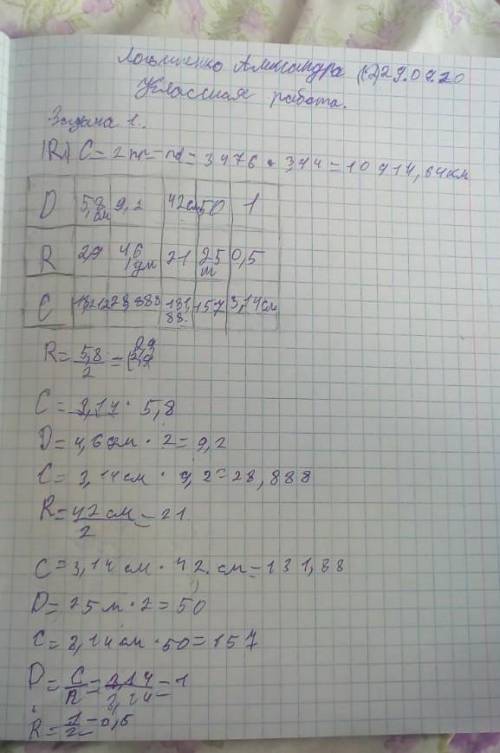 Александра (2) 29.09.20
Классная работа.
Задача 1.
C = 2πr = πd = 3476 • 3,14 = 10914,64 км
D 5,8 см 9,2 42 см 50 1
R 2,9 4,6 дм 21 25 м 0,5
C 28,888 131,88 157 3,14 см
R = 5,8/2 = 2,9
C = 3,14 • 5,8
D = 4,6 дм • 2 = 9,2
C = 3,14 см • 9,2 = 28,888
R = 42 см/2 = 21
C = 3,14 см • 42 см = 131,88
D = 25 м • 2 = 50
C = 3,14 см • 50 = 157
D = C/π = 3,14/3,14 = 1
R = 1/2 = 0,5